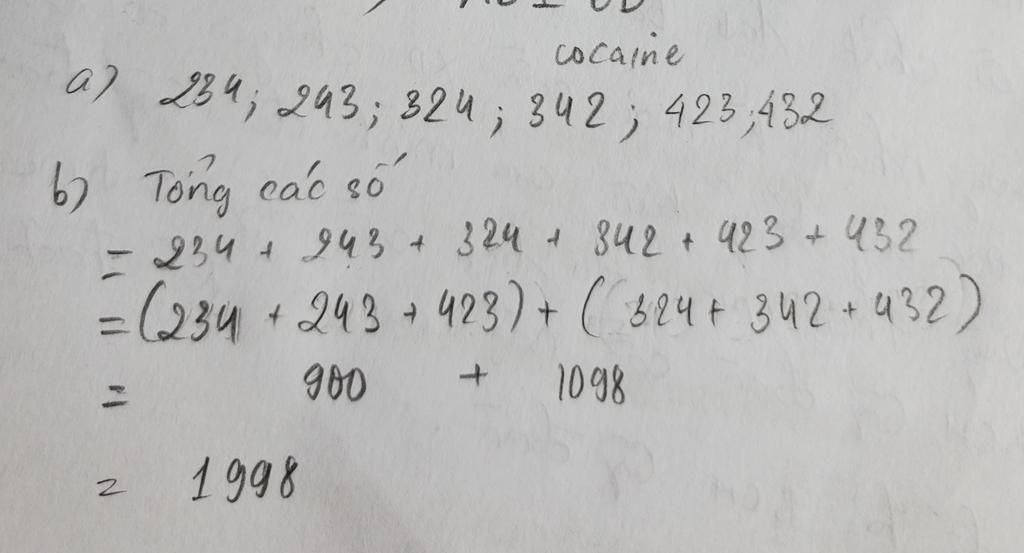 cocaine
a) 234; 243; 324; 342; 423; 432
b) Tổng các số
= 234 + 243 + 324 + 342 + 423 + 432
= (234 + 243 + 423) + (324 + 342 + 432)
= 900 + 1098
= 1998